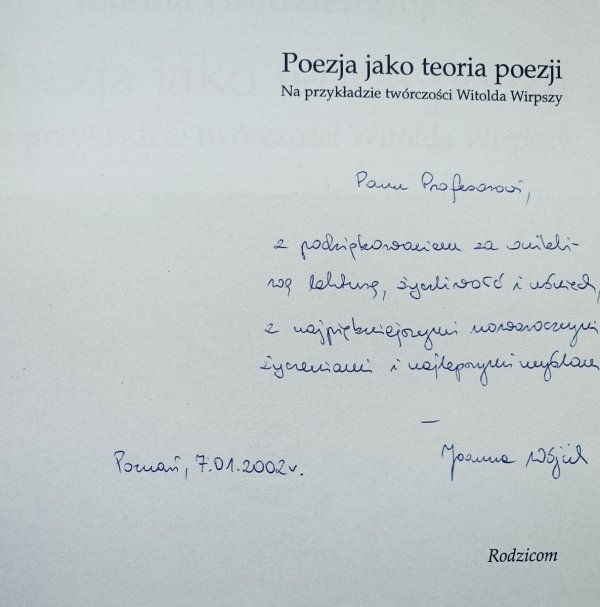 Poezja jako teoria poezji
Na przykładzie twórczości Witolda Wirpszy
Panu Profesorowi,
z podziękowaniem za wnikli-
wą lekturę, życzliwość i uśmiech,
z najpiękniejszymi noworocznymi
życzeniami i najlepszymi myślami
—
Poznań, 7.01.2002 r.
Joanna Wójcik
Rodzicom